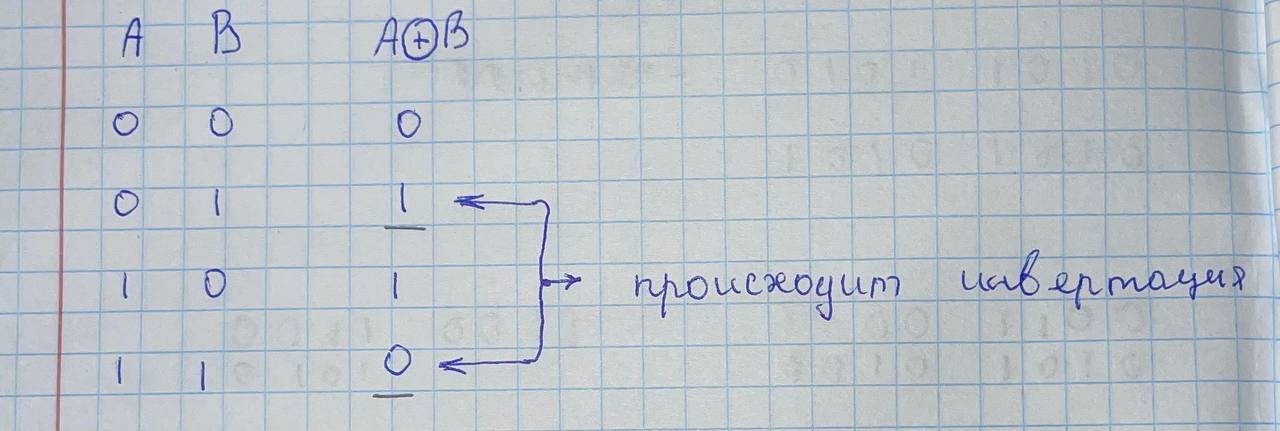 A B A⊕B
0 0 0
0 1 1
1 0 1 происходит инвертация
1 1 0